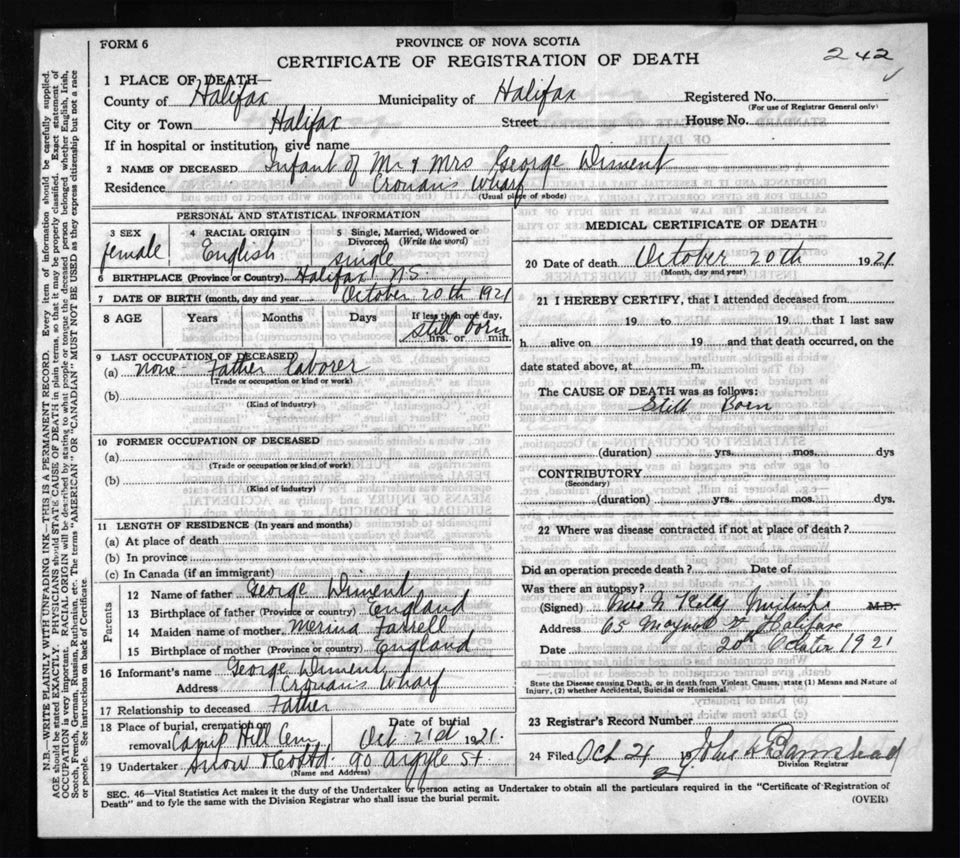 FORM 6
PROVINCE OF NOVA SCOTIA
242
CERTIFICATE OF REGISTRATION OF DEATH
1 PLACE OF DEATH—
County of Halifax Municipality of Halifax Registered No.
(For use of Registrar General only)
City or Town Halifax Street House No.
If in hospital or institution, give name
2 NAME OF DECEASED Infant of Mr & Mrs George Diment
Residence Cronans Wharf
(Usual place of abode)
PERSONAL AND STATISTICAL INFORMATION
3 SEX female
4 RACIAL ORIGIN English
5 Single, Married, Widowed or Divorced (Write the word) single
6 BIRTHPLACE (Province or Country) Halifax N.S.
7 DATE OF BIRTH (month, day and year) October 20th 1921
8 AGE Years Months Days If less than one day, hrs. or min. still born
9 LAST OCCUPATION OF DECEASED
(a) none Father laborer
(Trade or occupation or kind or work)
(b)
(Kind of industry)
10 FORMER OCCUPATION OF DECEASED
(a)
(Trade or occupation or kind of work)
(b)
(Kind of industry)
11 LENGTH OF RESIDENCE (In years and months)
(a) At place of death
(b) In province
(c) In Canada (if an immigrant)
Parents
12 Name of father George Diment
13 Birthplace of father (Province or country) England
14 Maiden name of mother Merina Farrell
15 Birthplace of mother (Province or country) England
16 Informant's name George Diment
Address Cronans Wharf
17 Relationship to deceased Father
18 Place of burial, cremation or removal Camp Hill Cem
Date of burial Oct 21st 1921.
19 Undertaker Snow & Co Ltd. 90 Argyle St.
(Name and Address)
MEDICAL CERTIFICATE OF DEATH
20 Date of death October 20th 1921
(Month, day and year)
21 I HEREBY CERTIFY, that I attended deceased from
19 to 19 , that I last saw
h alive on 19 and that death occurred, on the
date stated above, at m.
The CAUSE OF DEATH was as follows:
Still Born
(duration) yrs. mos. dys
CONTRIBUTORY
(Secondary)
(duration) yrs. mos. dys.
22 Where was disease contracted if not at place of death?
Did an operation precede death? Date of
Was there an autopsy?
(Signed) Kelly M.D.
Address 65 Maynard St Halifax
Date 20th October 1921
State the Disease causing Death, or in death from Violent Causes, state (1) Means and Nature of
Injury, (2) whether Accidental, Suicidal or Homicidal.
23 Registrar's Record Number
24 Filed Oct 21 21 John A Barnstead
Division Registrar
SEC. 46—Vital Statistics Act makes it the duty of the Undertaker or person acting as Undertaker to obtain all the particulars required in the "Certificate of Registration of
Death" and to fyle the same with the Division Registrar who shall issue the burial permit.
(OVER)
N.B.—WRITE PLAINLY WITH UNFADING INK—THIS IS A PERMANENT RECORD. Every item of information should be carefully supplied.
AGE should be stated EXACTLY. PHYSICIANS should STATE CAUSE OF DEATH in plain terms, so that it may be properly classified. Exact statement of
OCCUPATION is very important. RACIAL ORIGIN will be described by stating to what people or tongue the deceased person belonged whether English, Irish,
Scotch, French, German, Russian, Ruthenian, etc. The terms "AMERICAN" OR "CANADIAN" MUST NOT BE USED as they express citizenship but not a race
or people. See instructions on back of Certificate.